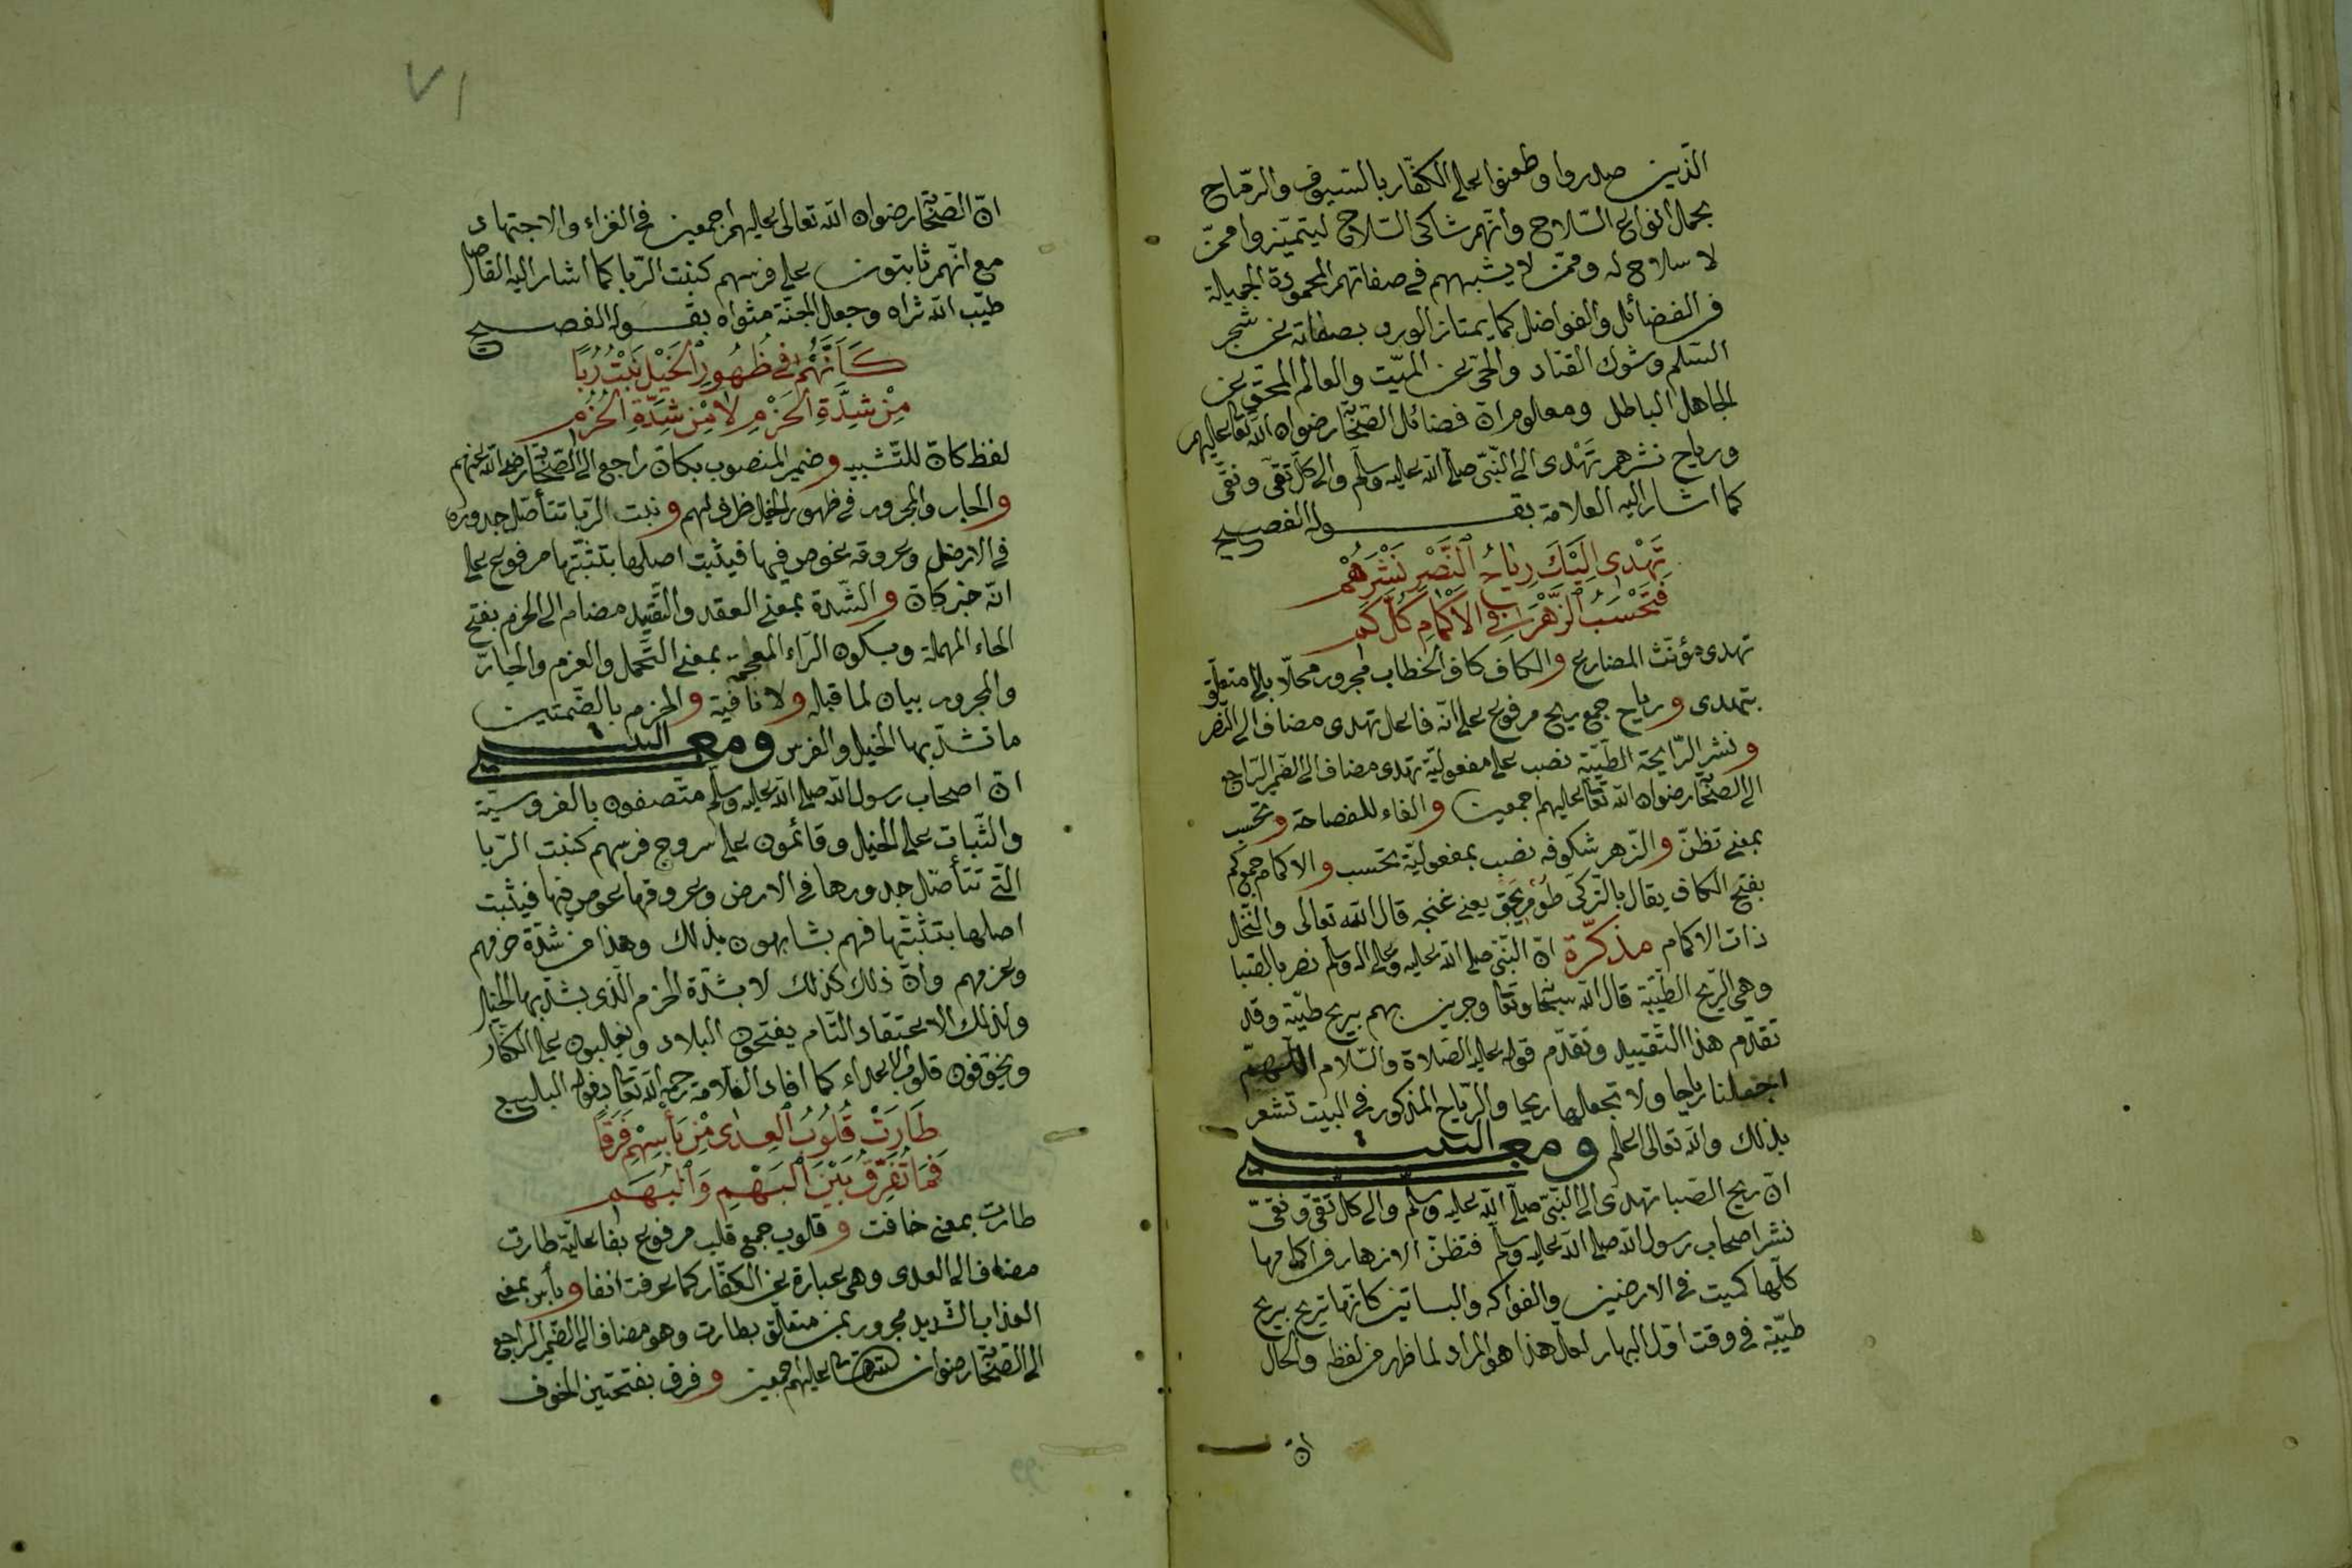 الّذين صدروا وطعنوا على الكفّار بالسّيوف والرّماح
بحمال انواع السّلاح وانّهم شاكى السّلاح ليتميّزوا ممّن
لا سلاح له وممّن لا يشبههم فى صفاتهم المحمودة الجميلة
من الفضائل والفواضل كما يمتاز الورد بصفاته عن شجر
السّلم وشوك القتاد والحىّ عن الميّت والعالم المحقّ عن
الجاهل الباطل ومعلوم انّ فضائل الصّحابة رضوان الله تعالى عليهم
ورياح نشرهم تهدى الى النّبىّ صلّى الله عليه وسلّم والى كلّ تقىّ ونقىّ
كما اشار اليه العلامة بقوله الفصيح
تُهْدِى اِلَيْكَ رِيَاحُ النَّصْرِ نَشْرَهُمْ
فَتَحْسَبُ الزَّهْرَ فِى الْاَكْمَامِ كُلَّ كَمِى
تهدى مؤنّث المضارع والكاف كاف الخطاب مجرور محلّا بالى متعلّق
بتهدى ورياح جمع ريح مرفوع على انّه فاعل تهدى مضاف الى النّصر
ونشر الرّايحة الطّيّبة نصب على مفعوليّة تهدى مضاف الى الضّمير الرّاجع
الى الصّحابة رضوان الله تعالى عليهم اجمعين والفاء للفصاحة وتحسب
بمعنى تظنّ والزّهر شكوفه نصب بمفعوليّة تحسب والاكمام جمع كم
بفتح الكاف يقال بالتّركى طومريجق يعنى غنجه قال الله تعالى والنّخل
ذات الاكمام مذكّرة انّ النّبىّ صلّى الله عليه وعلى اله وسلّم نصر بالصّبا
وهى الرّيح الطّيّبة قال الله سبحانه وتعالى وجرين بهم بريح طيّبة وقد
تقدّم هذا التّقييد وتقدّم قوله عليه الصّلاة والسّلام اللّهمّ
اجعلنا رياحا ولا تجعلها ريحا والرّياح المذكور فى البيت تشعر
بذلك والله تعالى اعلم ومعنى البيت
انّ ريح الصّبا تهدى الى النّبىّ صلّى الله عليه وسلّم والى كلّ تقىّ ونقىّ
نشر اصحاب رسول الله صلّى الله عليه وسلّم فتظنّ الازهار فى اكمامها
كلّها كميت فى الارضين والفواكه والبساتين كانّها تريح بريح
طيّبة فى وقت اوّل البهار لعلّ هذا هو المراد لما ظهر من لفظه والحال
انّ
٧١
انّ الصّحابة رضوان الله تعالى عليهم اجمعين فى الغزاء والاجتهاد
مع انّهم ثابتون على فرسهم كنبت الرّبا كما اشار اليه الفاضل
طيّب الله ثراه وجعل الجنّة مثواه بقوله الفصيح
كَاَنَّهُمْ فِى ظُهُورِ الْخَيْلِ نَبْتُ رُبًا
مِنْ شِدَّةِ الْحَزْمِ لَا مِنْ شِدَّةِ الْحُزُمِ
لفظ كانّ للتّشبيه وضمير المنصوب بكانّ راجع الى الصّحابة رضى الله عنهم
والجار والمجرور فى ظهور الخيل ظرف لهم ونبت الرّبا تتأصّل جدوره
فى الارض وعروقه غوص فيها فيثبت اصلها بتثبّتها مرفوع على
انّه خبر كانّ والشّدة بمعنى العقد والتّقييد مضام الى الحزم بفتح
الحاء المهملة وبسكون الزاء المعجمة بمعنى التّحمل والعزم والجار
والمجرور بيان لما قبله ولا نافية والحزم بالضّمتين
ما تشدّ بها الخيل والفرس ومعنى البيت
انّ اصحاب رسول الله صلّى الله عليه وسلّم متّصفون بالفروسيّة
والثّبات على الخيل وقائمون على سروج فرسهم كنبت الرّبا
الّتى تتأصّل جدورها فى الارض وعروقها غوص فيها فيثبت
اصلها بتثبّتها فهم يشابهون بذلك وهذا من شدّة حزمهم
وعزمهم وانّ ذلك كذلك لا بشدّة الحزم الّذى يشدّ بها الخيل
ولذلك الاعتقاد التّام يفتحون البلاد ويغلبون على الكفّار
ويخوّفون قلوب الاعداء كما افاد العلامة رحمه الله تعالى بقوله البليغ
طَارَتْ قُلُوبُ الْعِدَى مِنْ بَأْسِهِمْ فَرَقًا
فَمَا تُفَرِّقُ بَيْنَ الْبَهْمِ وَالْبُهَمِ
طارت بمعنى خافت وقلوب جمع قلب مرفوع بفاعليّة طارت
مضاف الى العدى وهى عبارة عن الكفّار كما عرفت انفا وبأس بمعنى
العذاب الشّديد مجرور بمن متعلّق بطارت وهو مضاف الى الضّمير الرّاجع
الى الصّحابة رضوان الله تعالى عليهم اجمعين وفرق بفتحتين الخوف